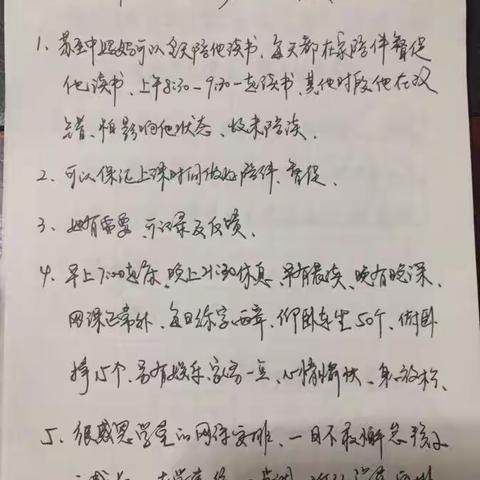 1、苏玉中妈妈可以每天陪他读书，每天都在家陪伴督促
他读书，上午8:30-9:30一起读书，其他时段他在
怕影响他状态、故未陪读、
2、可以保证上课时间做好陪伴、督促、
3、如有需要可记录及反馈、
4、早上7:00起床、晚上21:30休息、早有晨读、晚有晚课、
网课正常外、每日练字两章、仰卧起坐50个、俯卧
撑15个、另有娱乐、家务一点、心情愉快、身心放松、
5、很感恩学堂的网络安排、一日不敢懈怠孩子